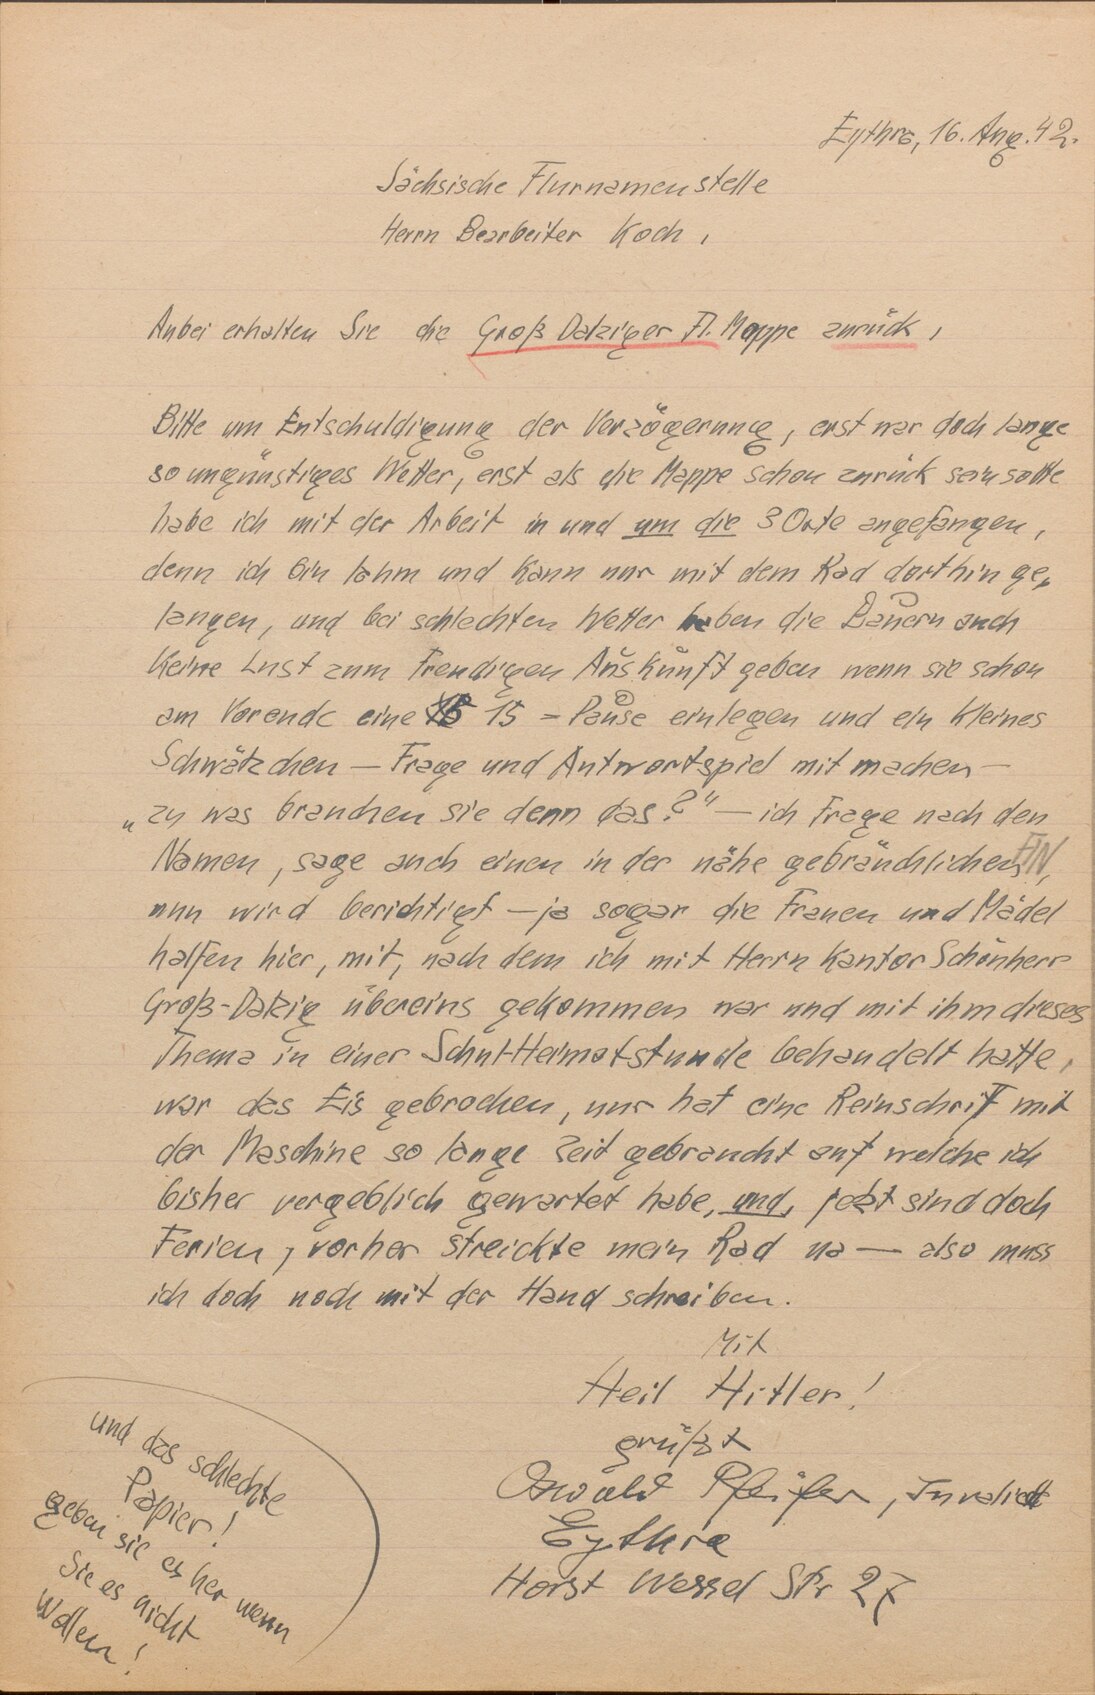 Eythra, 16. Aug. 42.
Sächsische Flurnamenstelle
Herrn Bearbeiter Koch,
Anbei erhalten Sie die Groß Dalziger Fl. Mappe zurück,
Bitte um Entschuldigung der Verzögerung, erst war doch lange
so ungünstiges Wetter, erst als die Mappe schon zurück sein sollte
habe ich mit der Arbeit in und um die 3 Orte angefangen,
denn ich bin lahm und kann nur mit dem Rad dorthin ge-
langen, und bei schlechten Wetter haben die Bauern auch
keine Lust zum freudigen Auskunft geben wenn sie schon
am Vorende eine 15 = Pause einlegen und ein kleines
Schwätzchen — Frage und Antwortspiel mit machen —
„zu was brauchen sie denn das?" — ich frage nach den
Namen, sage auch einen in der nähe gebräuchlichen FlN,
nun wird berichtigt — ja sogar die Frauen und Mädel
halfen hier, mit, nach dem ich mit Herrn Kantor Schönherr
Groß-Dalzig übereins gekommen war und mit ihm dieses
Thema in einer Schul-Heimatstunde behandelt hatte,
war das Eis gebrochen, nur hat eine Reinschrift mit
der Maschine so lange Zeit gebraucht auf welche ich
bisher vergeblich gewartet habe, und, jetzt sind doch
Ferien, vorher streickte mein Rad na — also muss
ich doch noch mit der Hand schreiben.
Mit
Heil Hitler!
grüßt
Oswald Pfeifer, Invalide
Eythra
Horst Wessel Str 27
und das schlechte
Papier!
geben sie es her wenn
Sie es nicht
Wollen!